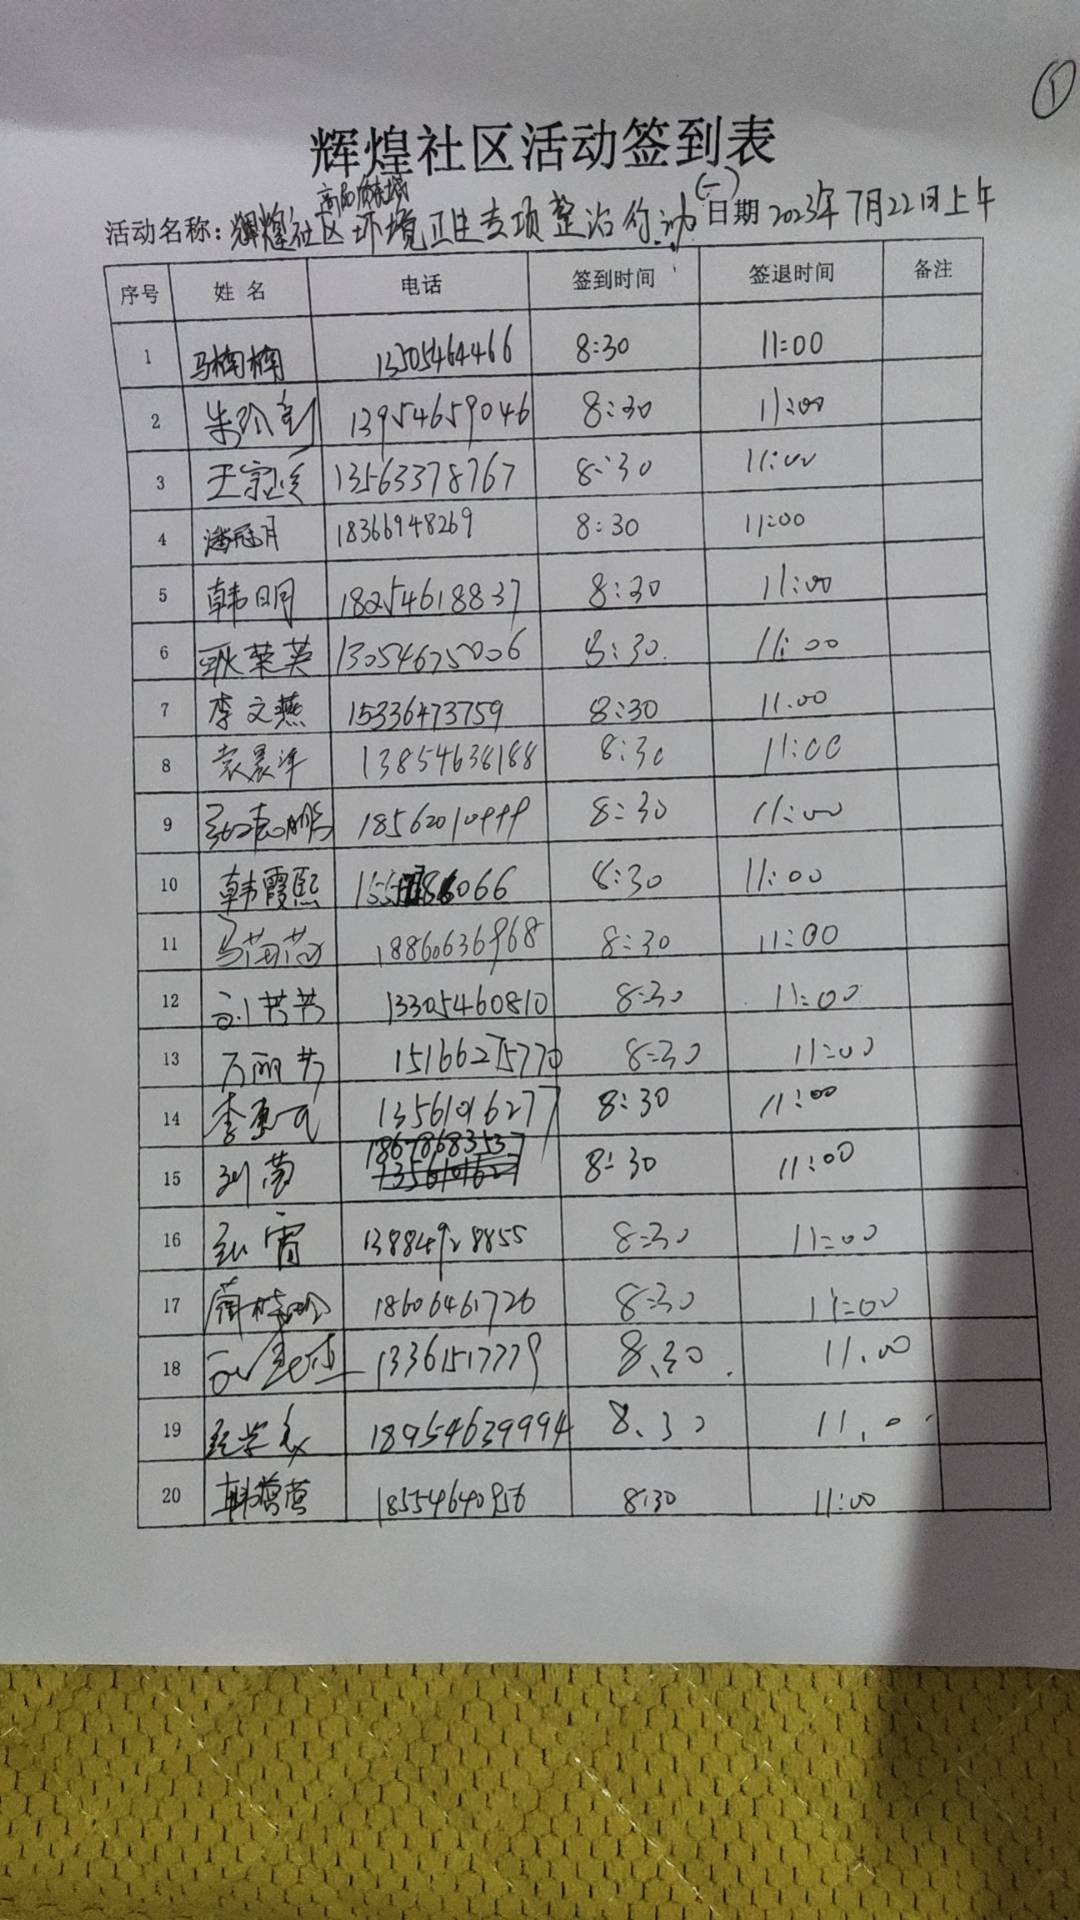 ①
辉煌社区活动签到表
活动名称：辉煌社区环境卫生专项整治行动(一) 日期 2023年7月22日上午
序号 姓名 电话 签到时间 签退时间 备注
1 马楠楠 13505464466 8:30 11:00
2 13954659046 8:30 11:00
3 13563378767 8:30 11:00
4 潘冠月 18366948269 8:30 11:00
5 韩明月 18254618837 8:30 11:00
6 耿荣英 13054675006 8:30 11:00
7 李文燕 15336473759 8:30 11.00
8 袁晨洋 13854638188 8:30 11:00
9 张志鹏 18562010999 8:30 11:00
10 韩霞熙 8:30 11:00
11 18860636968 8:30 11:00
12 刘芳芳 13305460810 8:30 11:00
13 万丽芳 15166275770 8:30 11:00
14 13561016277 8:30 11:00
15 18678683537 8:30 11:00
16 张霄 13884928855 8:30 11:00
17 18606461726 8:30 11:00
18 13361517779 8.30 11.00
19 18954639994 8.30 11.0
20 韩莺莺 18554640956 8:30 11:00